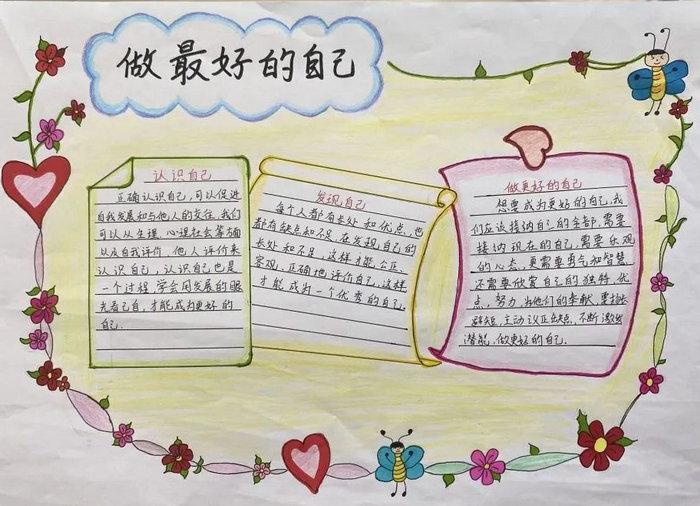 做最好的自己
认识自己
正确认识自己,可以促进
自我发展和与他人的交往,我们
可以从生理、心理社会等方面
以及自我评价,他人评价来
认识自己,认识自己也是
一个过程,学会用发展的眼
光看己自,才能成为更好的
自己.
发现自己
每个人都有长处和优点,也
都有缺点和不足,在发现自己的
长处和不足,这样才能公正、
客观、正确地评价自己,这样
才能成为一个优秀的自己.
做更好的自己
想要成为更好的自己,我
们应该接纳自己的全部,需要
接纳现在的自己,需要乐观
的心态,更需要勇气和智慧
还需要欣赏自己的独特,优
点、努力,为他们的奉献,要扬长
避短,主动改正缺点,不断激发
潜能,做更好的自己.